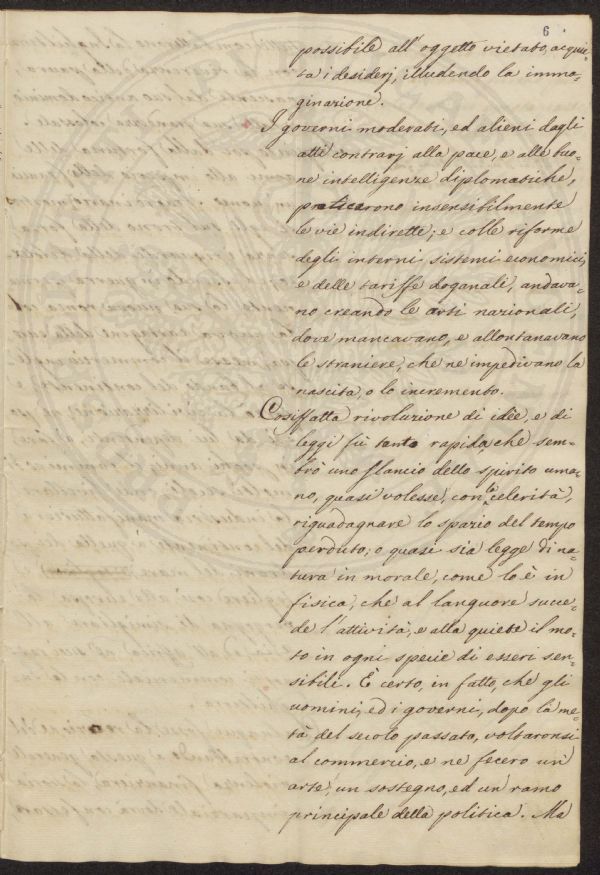 6
possibile all'oggetto vietato, acqui=
ta i desiderj, illudendo la imma=
ginazione.
I governi moderati, ed alieni dagli
atti contrarj alla pace, e alle buo=
ne intelligenze diplomatiche,
praticarono insensibilmente
le vie indirette; e colle riforme
degli interni sistemi economici,
e delle tariffe doganali, andava=
no creando le arti nazionali,
dove mancavano, e allontanavano
le straniere, che ne impedivano la
nascita, o lo incremento.
Cosiffatta rivoluzione di idèe, e di
leggi fù tanto rapida, che sem=
brò uno slancio dello spirito uma=
no, quasi volesse, con la celerità,
riguadagnare lo spazio del tempo
perduto; o quasi sia legge di na=
tura in morale, come lo è in
fisica, che al languore succe=
de l'attività, e alla quiete il mo=
to in ogni specie di esseri sen=
sibili. È certo, in fatto, che gli
uomini, ed i governi, dopo la me=
tà del secolo passato, voltaronsi
al commercio, e ne fecero un'
arte, un sostegno, ed un ramo
principale della politica. Ma